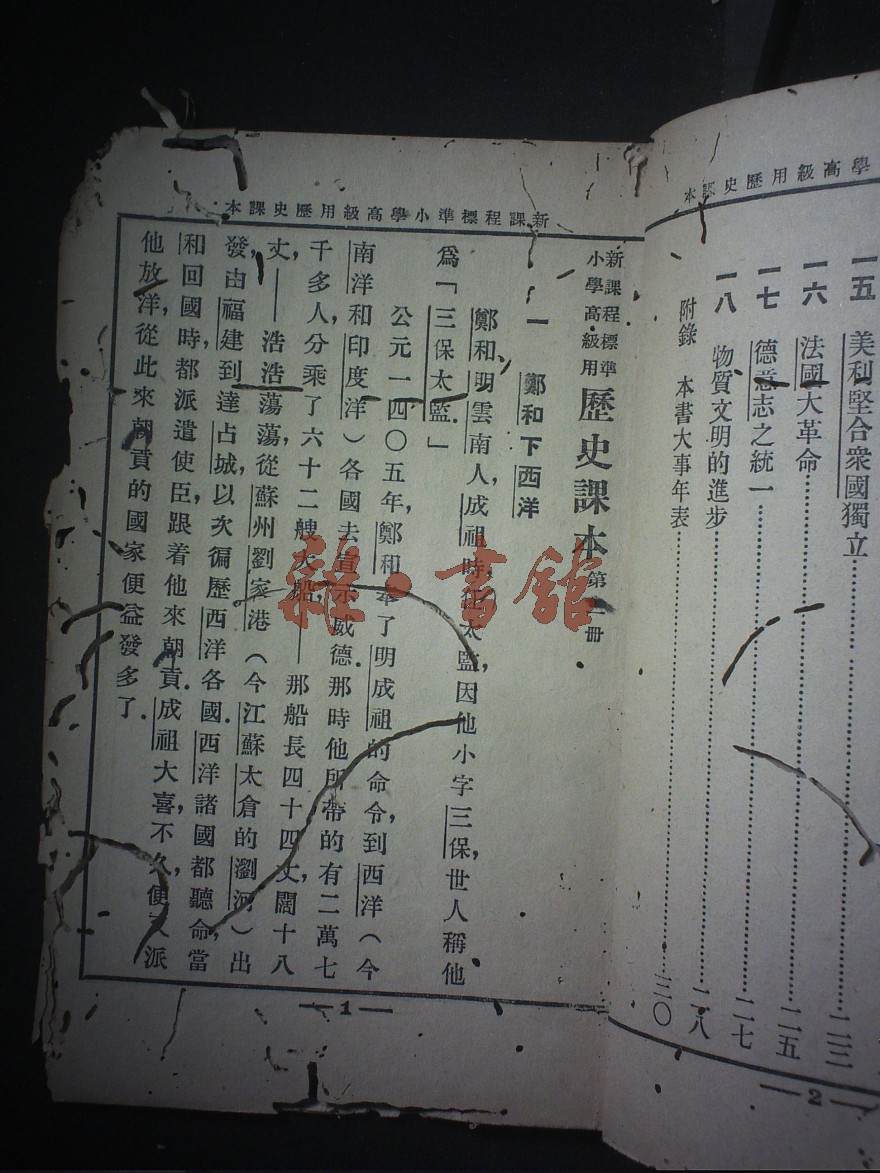 學高級用歷史課本
一五 美利堅合衆國獨立……二三
一六 法國大革命……二五
一七 德意志之統一……二七
一八 物質文明的進步……二八
附錄 本書大事年表……三〇
—2—
新課程標準小學高級用歷史課本
新課程標準
小學高級用
歷史課本 第 冊
一 鄭和下西洋
鄭和,明雲南人,成祖時 太監,因他小字三保,世人稱他
爲「三保太監.」
公元一四〇五年,鄭和奉了明成祖的命令,到西洋(今
南洋和印度洋)各國去宣示威德.那時他所帶的有二萬七
千多人,分乘了六十二艘大船,——那船長四十四丈,闊十八
丈,——浩浩蕩蕩,從蘇州劉家港(今江蘇太倉的瀏河)出
發,由福建到達占城,以次徧歷西洋各國.西洋諸國都聽命,當
和回國時,都派遣使臣,跟着他來朝貢.成祖大喜,不久,便又派
他放洋,從此來朝貢的國家便益發多了.
—1—
雜·書館